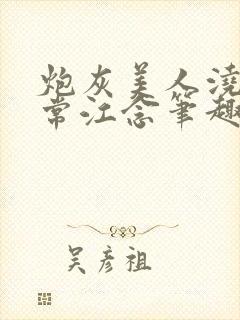 炮灰美人浇
常江念笔趣
吴彦祖